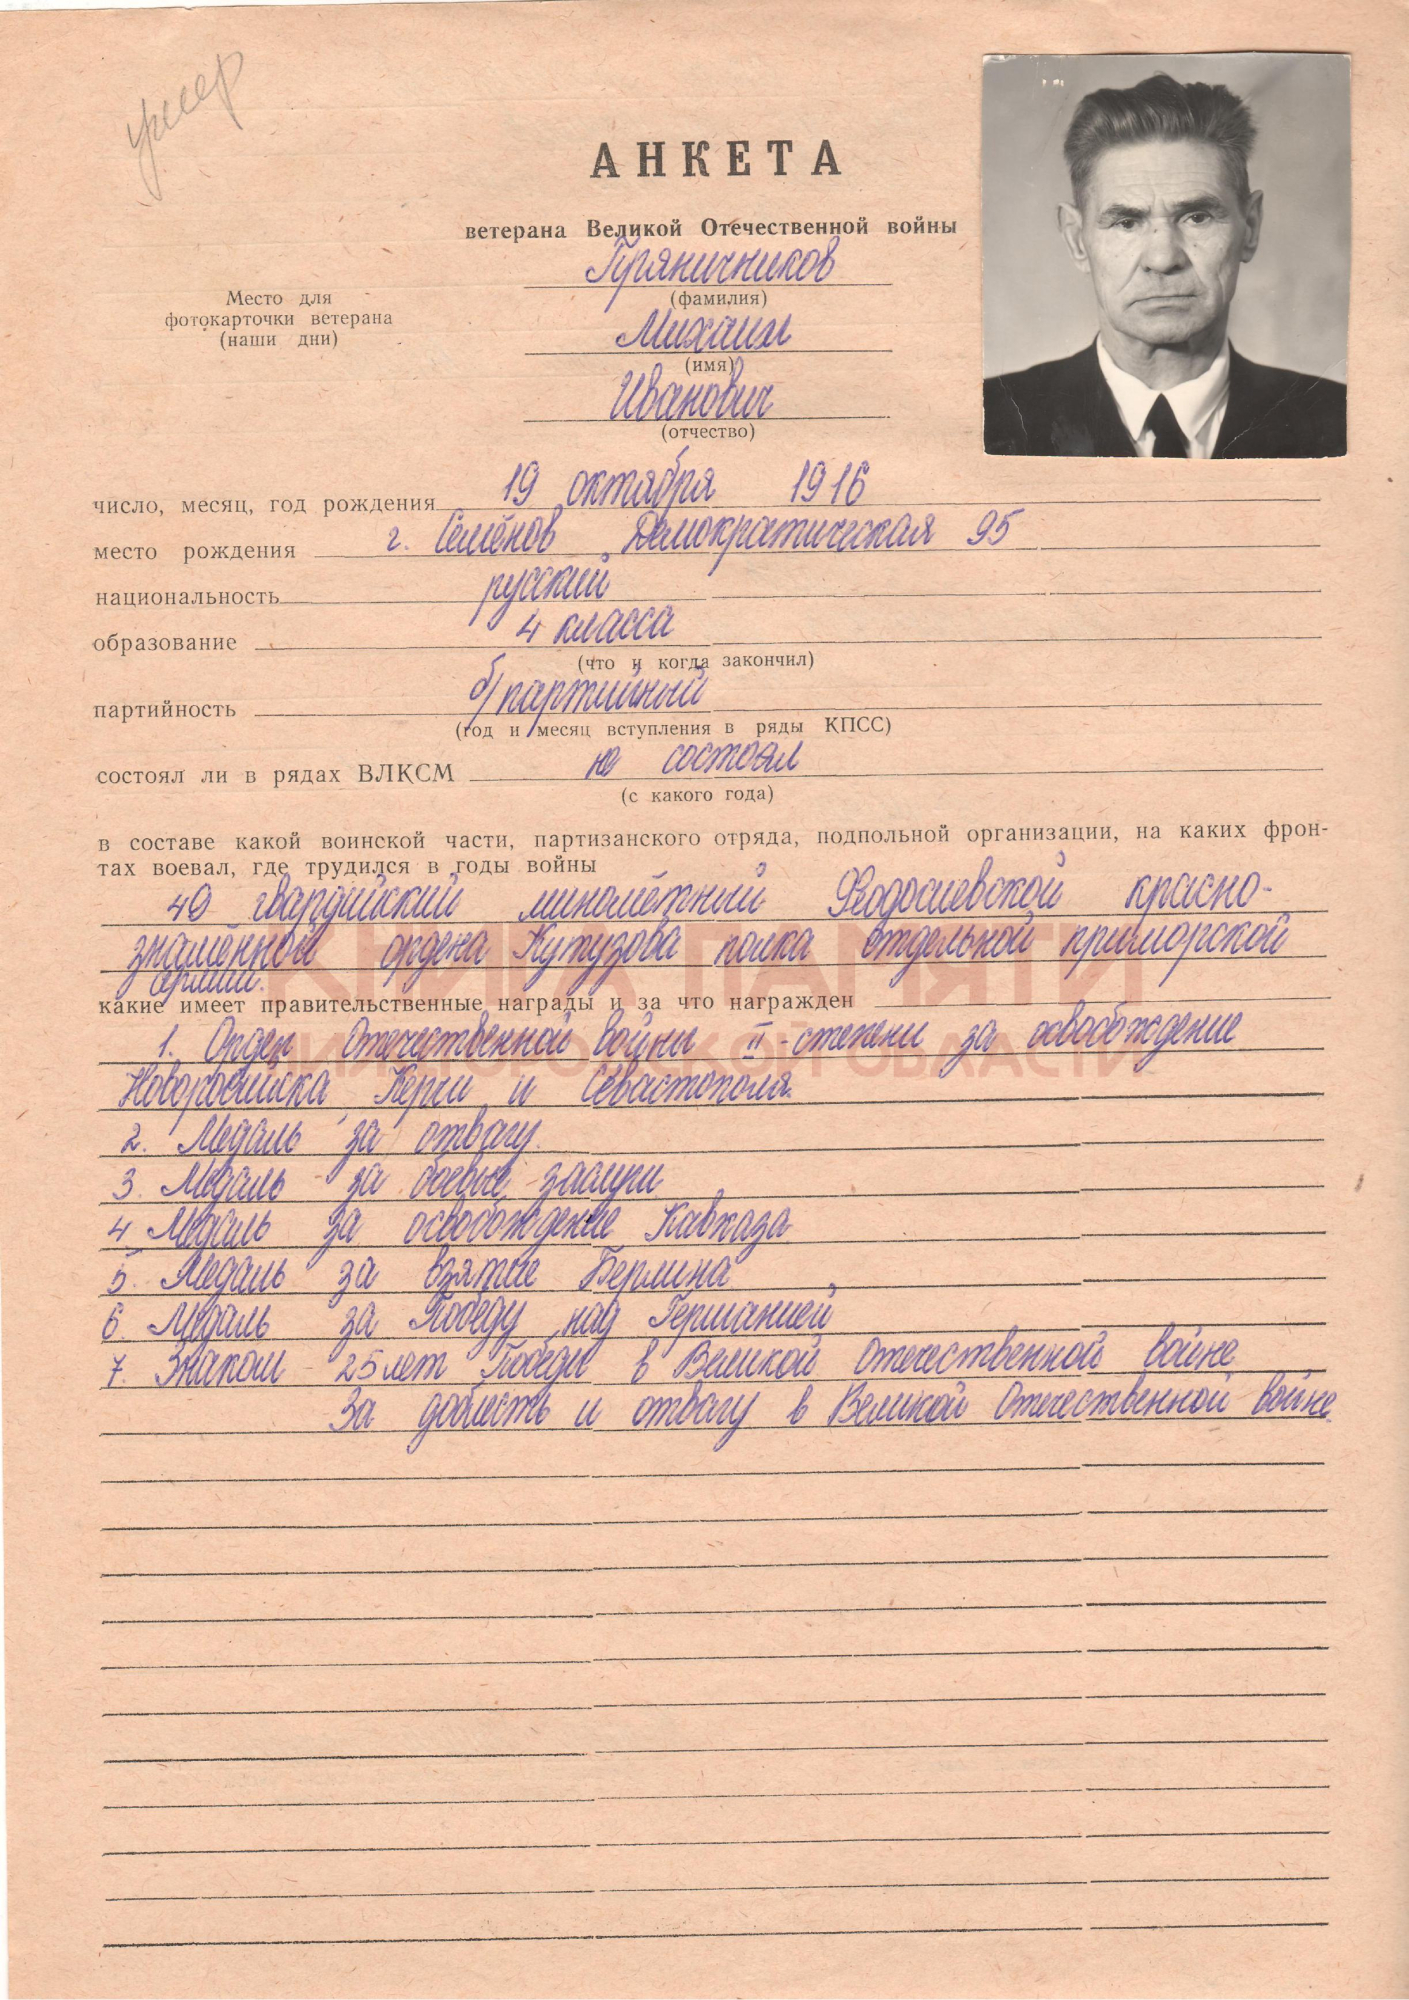 умер
АНКЕТА
ветерана Великой Отечественной войны
Пряничников
(фамилия)
Место для
фотокарточки ветерана
(наши дни)
Михаил
(имя)
Иванович
(отчество)
число, месяц, год рождения 19 октября 1916
место рождения г. Семёнов Демократическая 95
национальность русский
образование 4 класса
(что и когда закончил)
партийность б/партийный
(год и месяц вступления в ряды КПСС)
состоял ли в рядах ВЛКСМ не состоял
(с какого года)
в составе какой воинской части, партизанского отряда, подпольной организации, на каких фрон-
тах воевал, где трудился в годы войны
49 гвардийский миномётный Феодосиевской красно-
знамённой ордена Кутузова полка отдельной приморской
армии.
КНИГА ПАМЯТИ
какие имеет правительственные награды и за что награжден
1. Орден Отечественной войны II-степени за освобождение
НИЖЕГОРОДСКОЙ ОБЛАСТИ
Новоросийска Керчи и Севастополя.
2. Медаль за отвагу.
3. Медаль за боевые заслуги
4 Медаль за освобождение Кавказа
5. Медаль за взятие Берлина
6. Медаль за Победу над Германией
7. Знаком 25 лет Победы в Великой Отечественной войне
За доблесть и отвагу в Великой Отечественной войне.